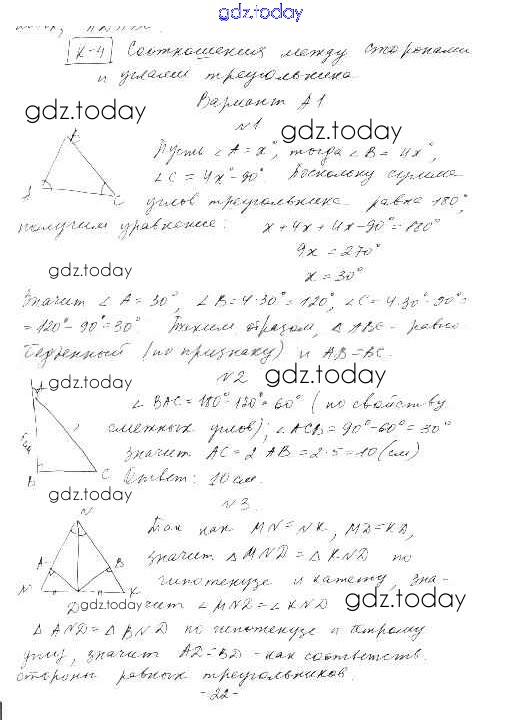 gdz.today
К-4 Соотношения между сторонами
и углами треугольника
Вариант А1
gdz.today
№1
gdz.today
B
A
C
Пусть ∠A = x°, тогда ∠B = 4x°,
∠C = 4x° - 90°. Поскольку сумма
углов треугольника равна 180°,
получим уравнение: x + 4x + 4x - 90° = 180°
9x = 270°
gdz.today
x = 30°
Значит ∠A = 30°, ∠B = 4·30° = 120°, ∠C = 4·30° - 90° =
= 120° - 90° = 30°. Таким образом, △ABC - равно-
бедренный (по признаку) и AB = BC.
№2
gdz.today
gdz.today
∠BAC = 180° - 120° = 60° (по свойству
смежных углов); ∠ACB = 90° - 60° = 30°
5 см
значит AC = 2 AB = 2·5 = 10 (см)
B
C
Ответ: 10 см.
gdz.today
№3.
N
Так как MN = NK, MD = KD,
A
B
значит △MND = △KND по
M
K
гипотенузе и катету, зна-
D
gdz.today
чит ∠MND = ∠KND
gdz.today
△AND = △BND по гипотенузе и острому
углу, значит AD = BD - как соответств.
стороны равных треугольников.
- 22 -